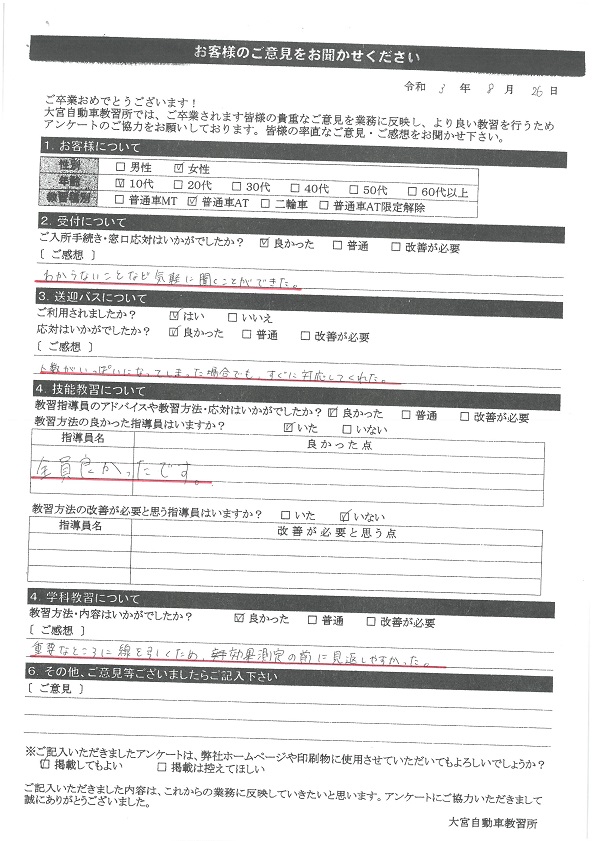 お客様のご意見をお聞かせください
令和 3 年 8 月 26 日
ご卒業おめでとうございます！
大宮自動車教習所では、ご卒業されます皆様の貴重なご意見を業務に反映し、より良い教習を行うため
アンケートのご協力をお願いしております。皆様の率直なご意見・ご感想をお聞かせ下さい。
1. お客様について
性別 □ 男性 ☑ 女性
年齢 ☑ 10代 □ 20代 □ 30代 □ 40代 □ 50代 □ 60代以上
教習種別 □ 普通車MT ☑ 普通車AT □ 二輪車 □ 普通車AT限定解除
2. 受付について
ご入所手続き・窓口応対はいかがでしたか？ ☑ 良かった □ 普通 □ 改善が必要
〔 ご感想 〕
わからないことなど気軽に聞くことができた。
3. 送迎バスについて
ご利用されましたか？ ☑ はい □ いいえ
応対はいかがでしたか？ ☑ 良かった □ 普通 □ 改善が必要
〔 ご感想 〕
人数がいっぱいになってしまった場合でも、すぐに対応してくれた。
4. 技能教習について
教習指導員のアドバイスや教習方法・応対はいかがでしたか？ ☑ 良かった □ 普通 □ 改善が必要
教習方法の良かった指導員はいますか？ ☑ いた □ いない
指導員名 良かった点
全員良かったです。
教習方法の改善が必要と思う指導員はいますか？ □ いた ☑ いない
指導員名 改善が必要と思う点
4. 学科教習について
教習方法・内容はいかがでしたか？ ☑ 良かった □ 普通 □ 改善が必要
〔 ご感想 〕
重要なところに線を引くため、効果測定の前に見返しやすかった。
6. その他、ご意見等ございましたらご記入下さい
〔 ご意見 〕
※ご記入いただきましたアンケートは、弊社ホームページや印刷物に使用させていただいてもよろしいでしょうか？
☑ 掲載してもよい □ 掲載は控えてほしい
ご記入いただきました内容は、これからの業務に反映していきたいと思います。アンケートにご協力いただきまして
誠にありがとうございました。
大宮自動車教習所